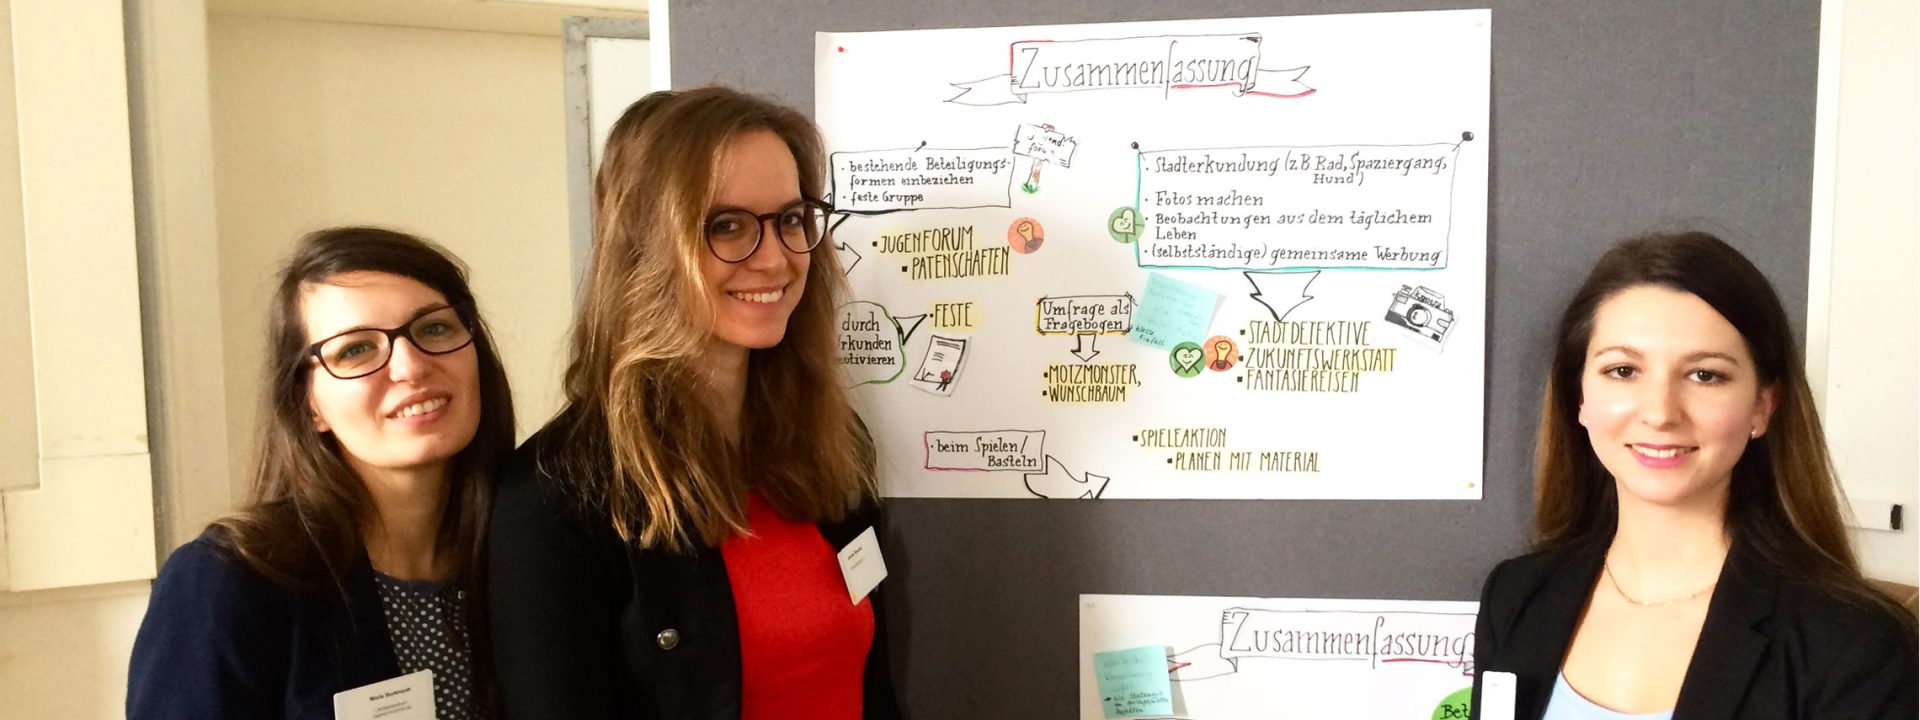 Zusammenfassung
· bestehende Beteiligungs-
formen einbeziehen
· feste Gruppe
▪ JUGENFORUM
▪ PATENSCHAFTEN
durch
▪ FESTE
Umfrage als
Fragebogen
▪ MOTZMONSTER,
▪ WUNSCHBAUM
· beim Spielen/
Basteln
· Stadterkundung (z.B Rad, Spaziergang,
Hund)
· Fotos machen
· Beobachtungen aus dem täglichem
Leben
· (selbstständige) gemeinsame Werbung
Kamera
▪ STADTDETEKTIVE
▪ ZUKUNFTSWERKSTATT
▪ FANTASIEREISEN
▪ SPIELEAKTION
▪ PLANEN MIT MATERIAL
Zusammenfassung
Bet